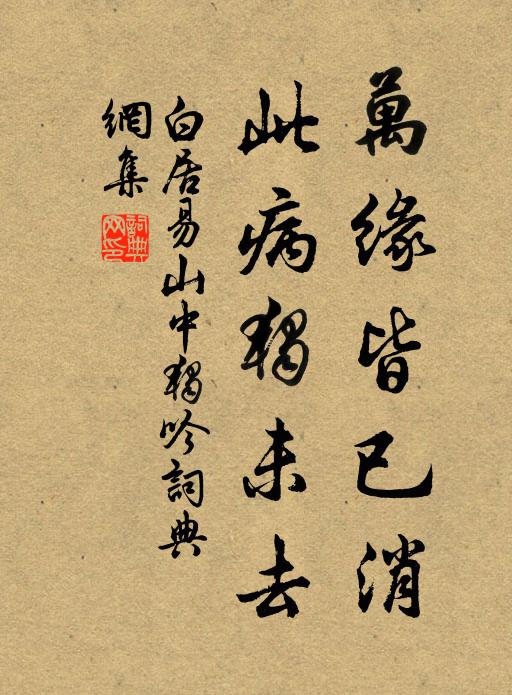 萬緣皆已消
此病獨未去
白居易山中獨吟詞典
網集
詞典
网印